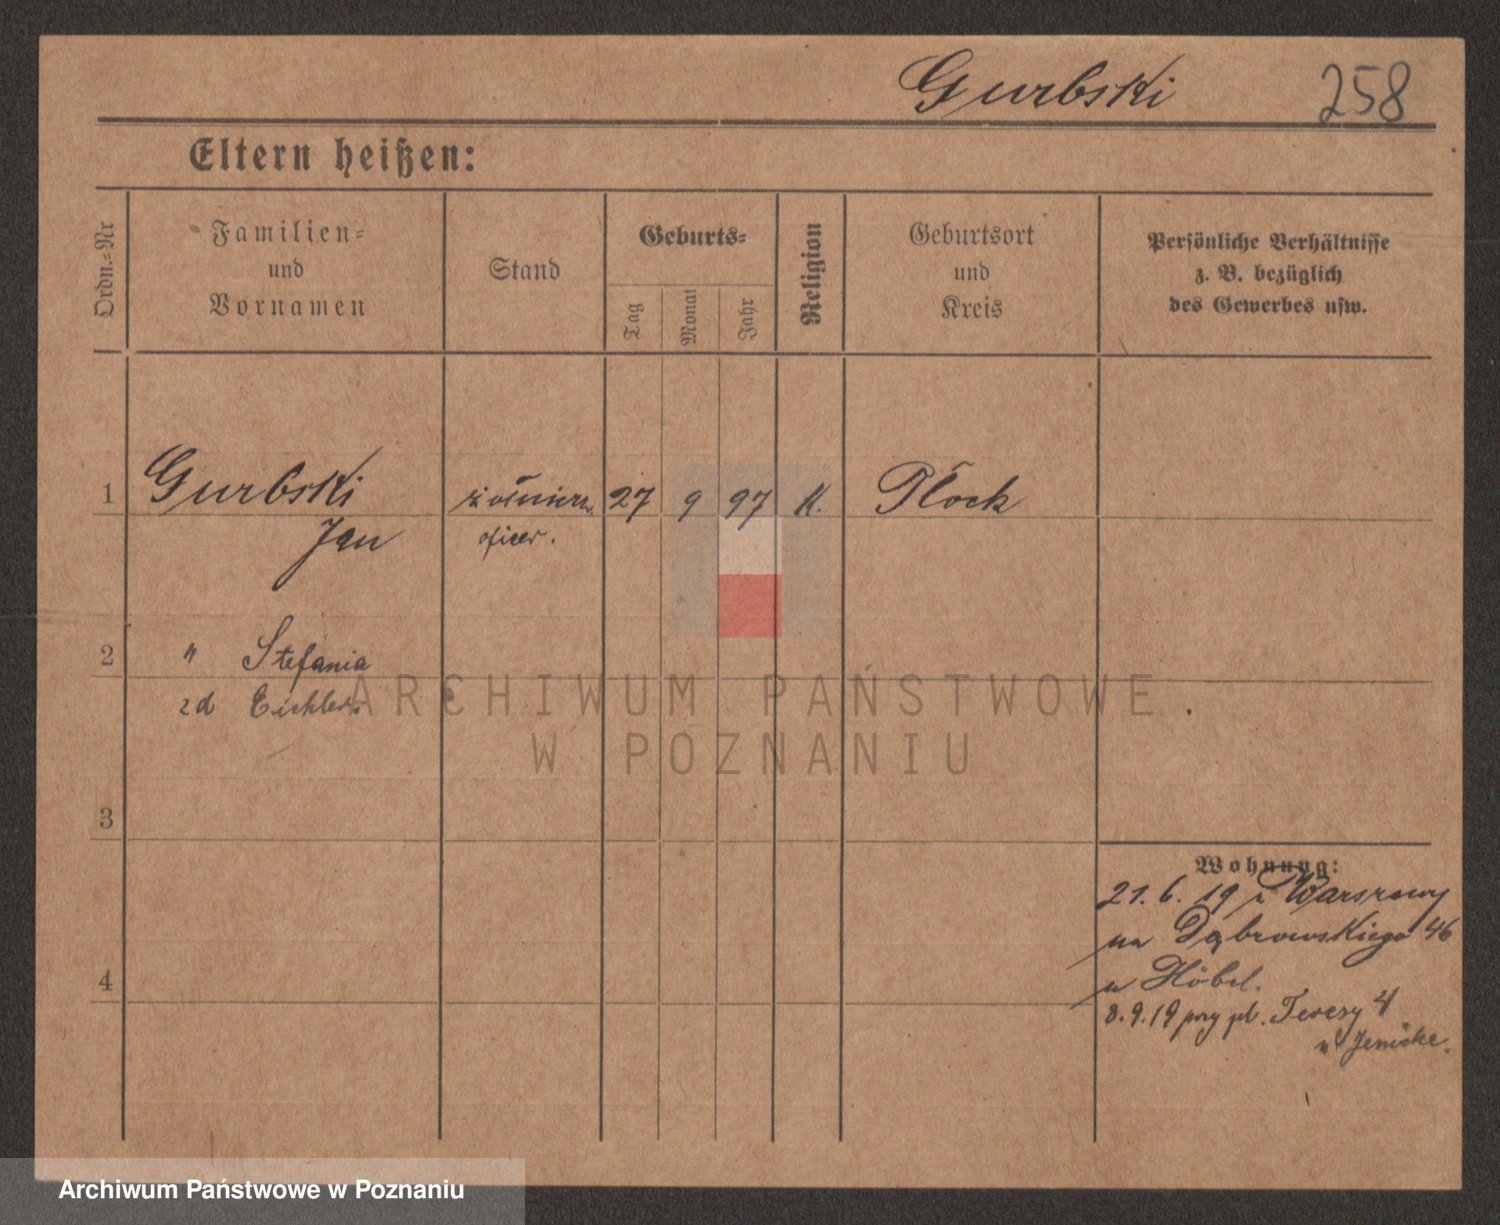 Gurbski 258
Eltern heißen:
Ordn.-Nr
Familien-
und
Vornamen
Stand
Geburts-
Tag
Monat
Jahr
Religion
Geburtsort
und
Kreis
Persönliche Verhältnisse
z. B. bezüglich
des Gewerbes usw.
1 Gurbski żołnierz 27 9 97 K. Płock
Jan oficer.
2 " Stefania
zd Eichler
3
4
Wohnung:
21. 6. 19 z Warszawy
na Dąbrowskiego 46
u Höbel.
8.9.19 przy pl. Teresy 4
u Jenicke.
ARCHIWUM PAŃSTWOWE
W POZNANIU
Archiwum Państwowe w Poznaniu